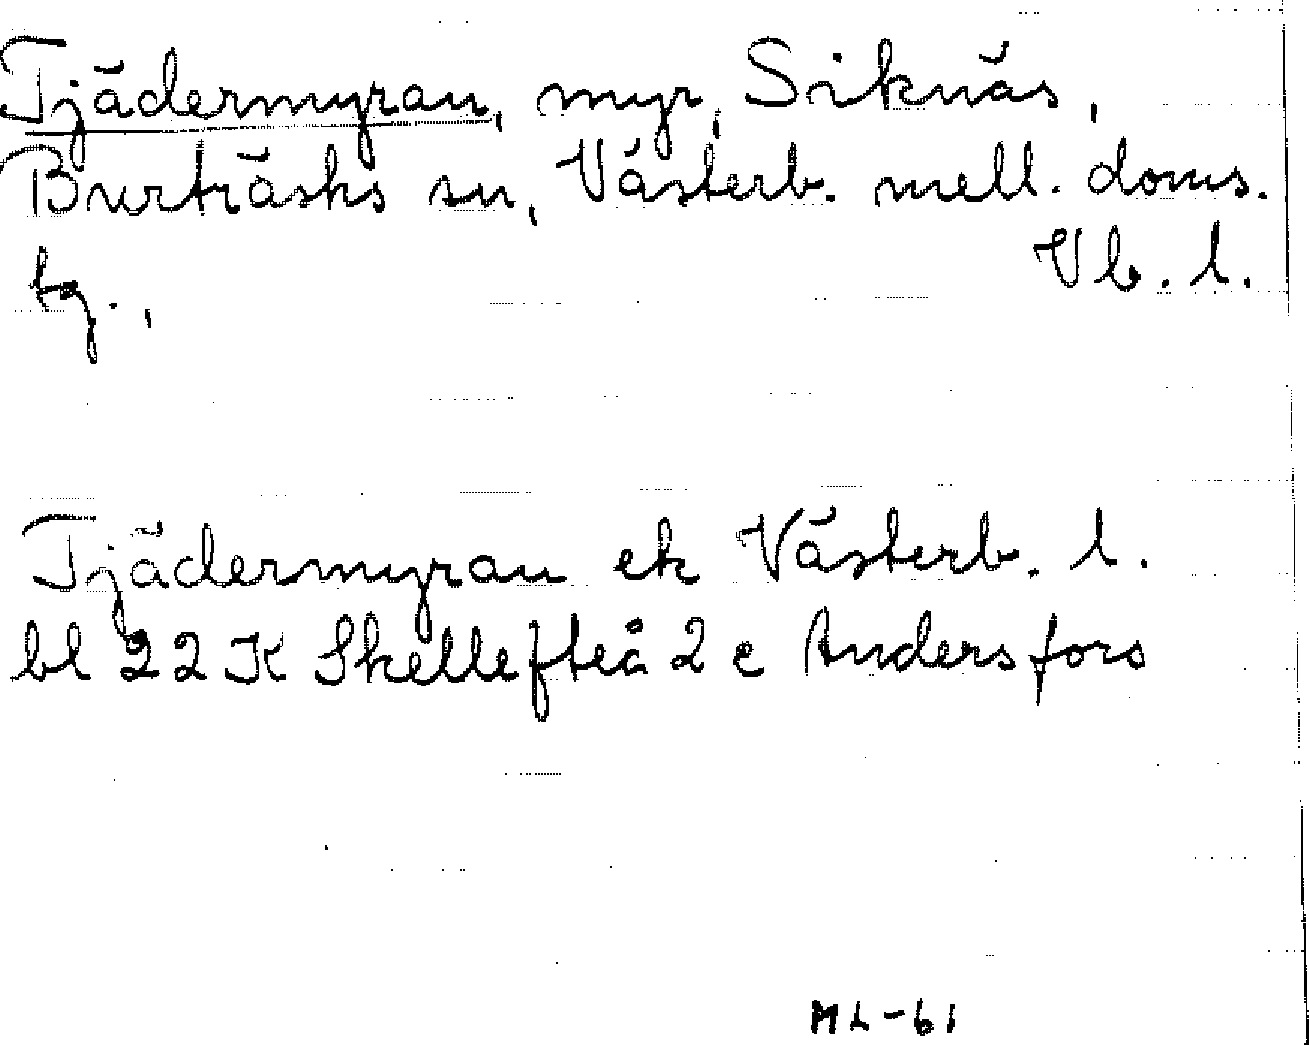 Tjädermyran, myr, Siknäs,
Burträsks sn, Västerb. mell. doms.
tg., Vb. l.
Tjädermyran ek Västerb. l.
bl 22 K Skellefteå 2 c Andersfors
ML-61